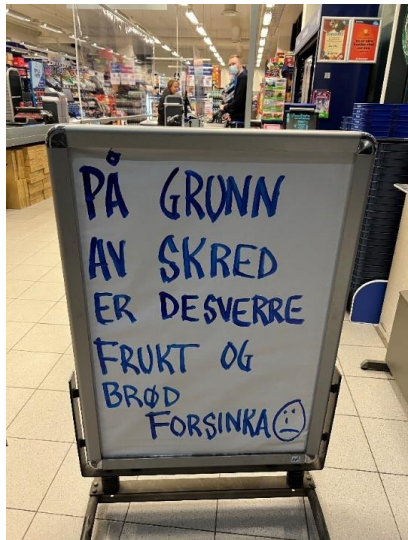 PÅ GRUNN
AV SKRED
ER DESVERRE
FRUKT OG
BRØD
FORSINKA